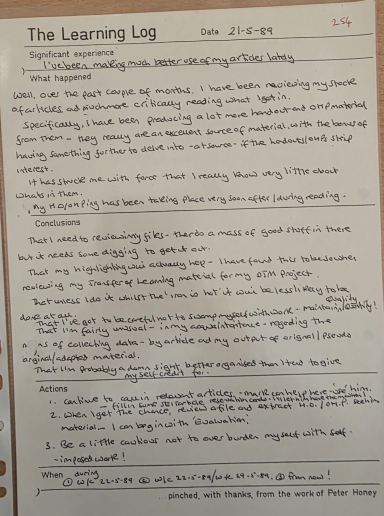 254
The Learning Log
Date 21-5-89
Significant experience
I've been making much better use of my articles lately
What happened
Well, over the past couple of months, I have been reviewing my stock
of articles and much more critically reading what I got in.
Specifically, I have been producing a lot more handout and OHP material
from them - they really are an excellent source of material, with the bonus of
having something further to delve into - at source - if the hodouts/OHPs strip
interest.
It has struck me with force that I really know very little about
whats in them.
My HO/OHPing has been taking place very soon after/during reading.
Conclusions
That I need to review my files - theres a mass of good stuff in there
but it needs some digging to get it out.
That my highlighting will actually help - I have found this to be so when
reviewing my Transfer of Learning material for my OTM project.
That unless I do it whilst the 'iron is hot' it will be less likely to be
done at all.
That I've got to be careful not to swamp myself with work - maintain quality
That I'm fairly unusual - in my acquaintance - regarding the
of collecting data - by article and my output of original/pseudo
original/adapted material.
That I'm probably a damn sight better organised than I tend to give
my self credit for.
Actions
1. Continue to call in relevant articles - Mark can help here - use him.
2. When I get the chance, review a file and extract H.O./OH.P.
material - I can begin with 'Evaluation'.
3. Be a little cautious not to over burden myself with self
- imposed work!
When during
① w/c 22-5-89 ② w/c 22-5-89/w/c 29-5-89. ③ from now!
...pinched, with thanks, from the work of Peter Honey